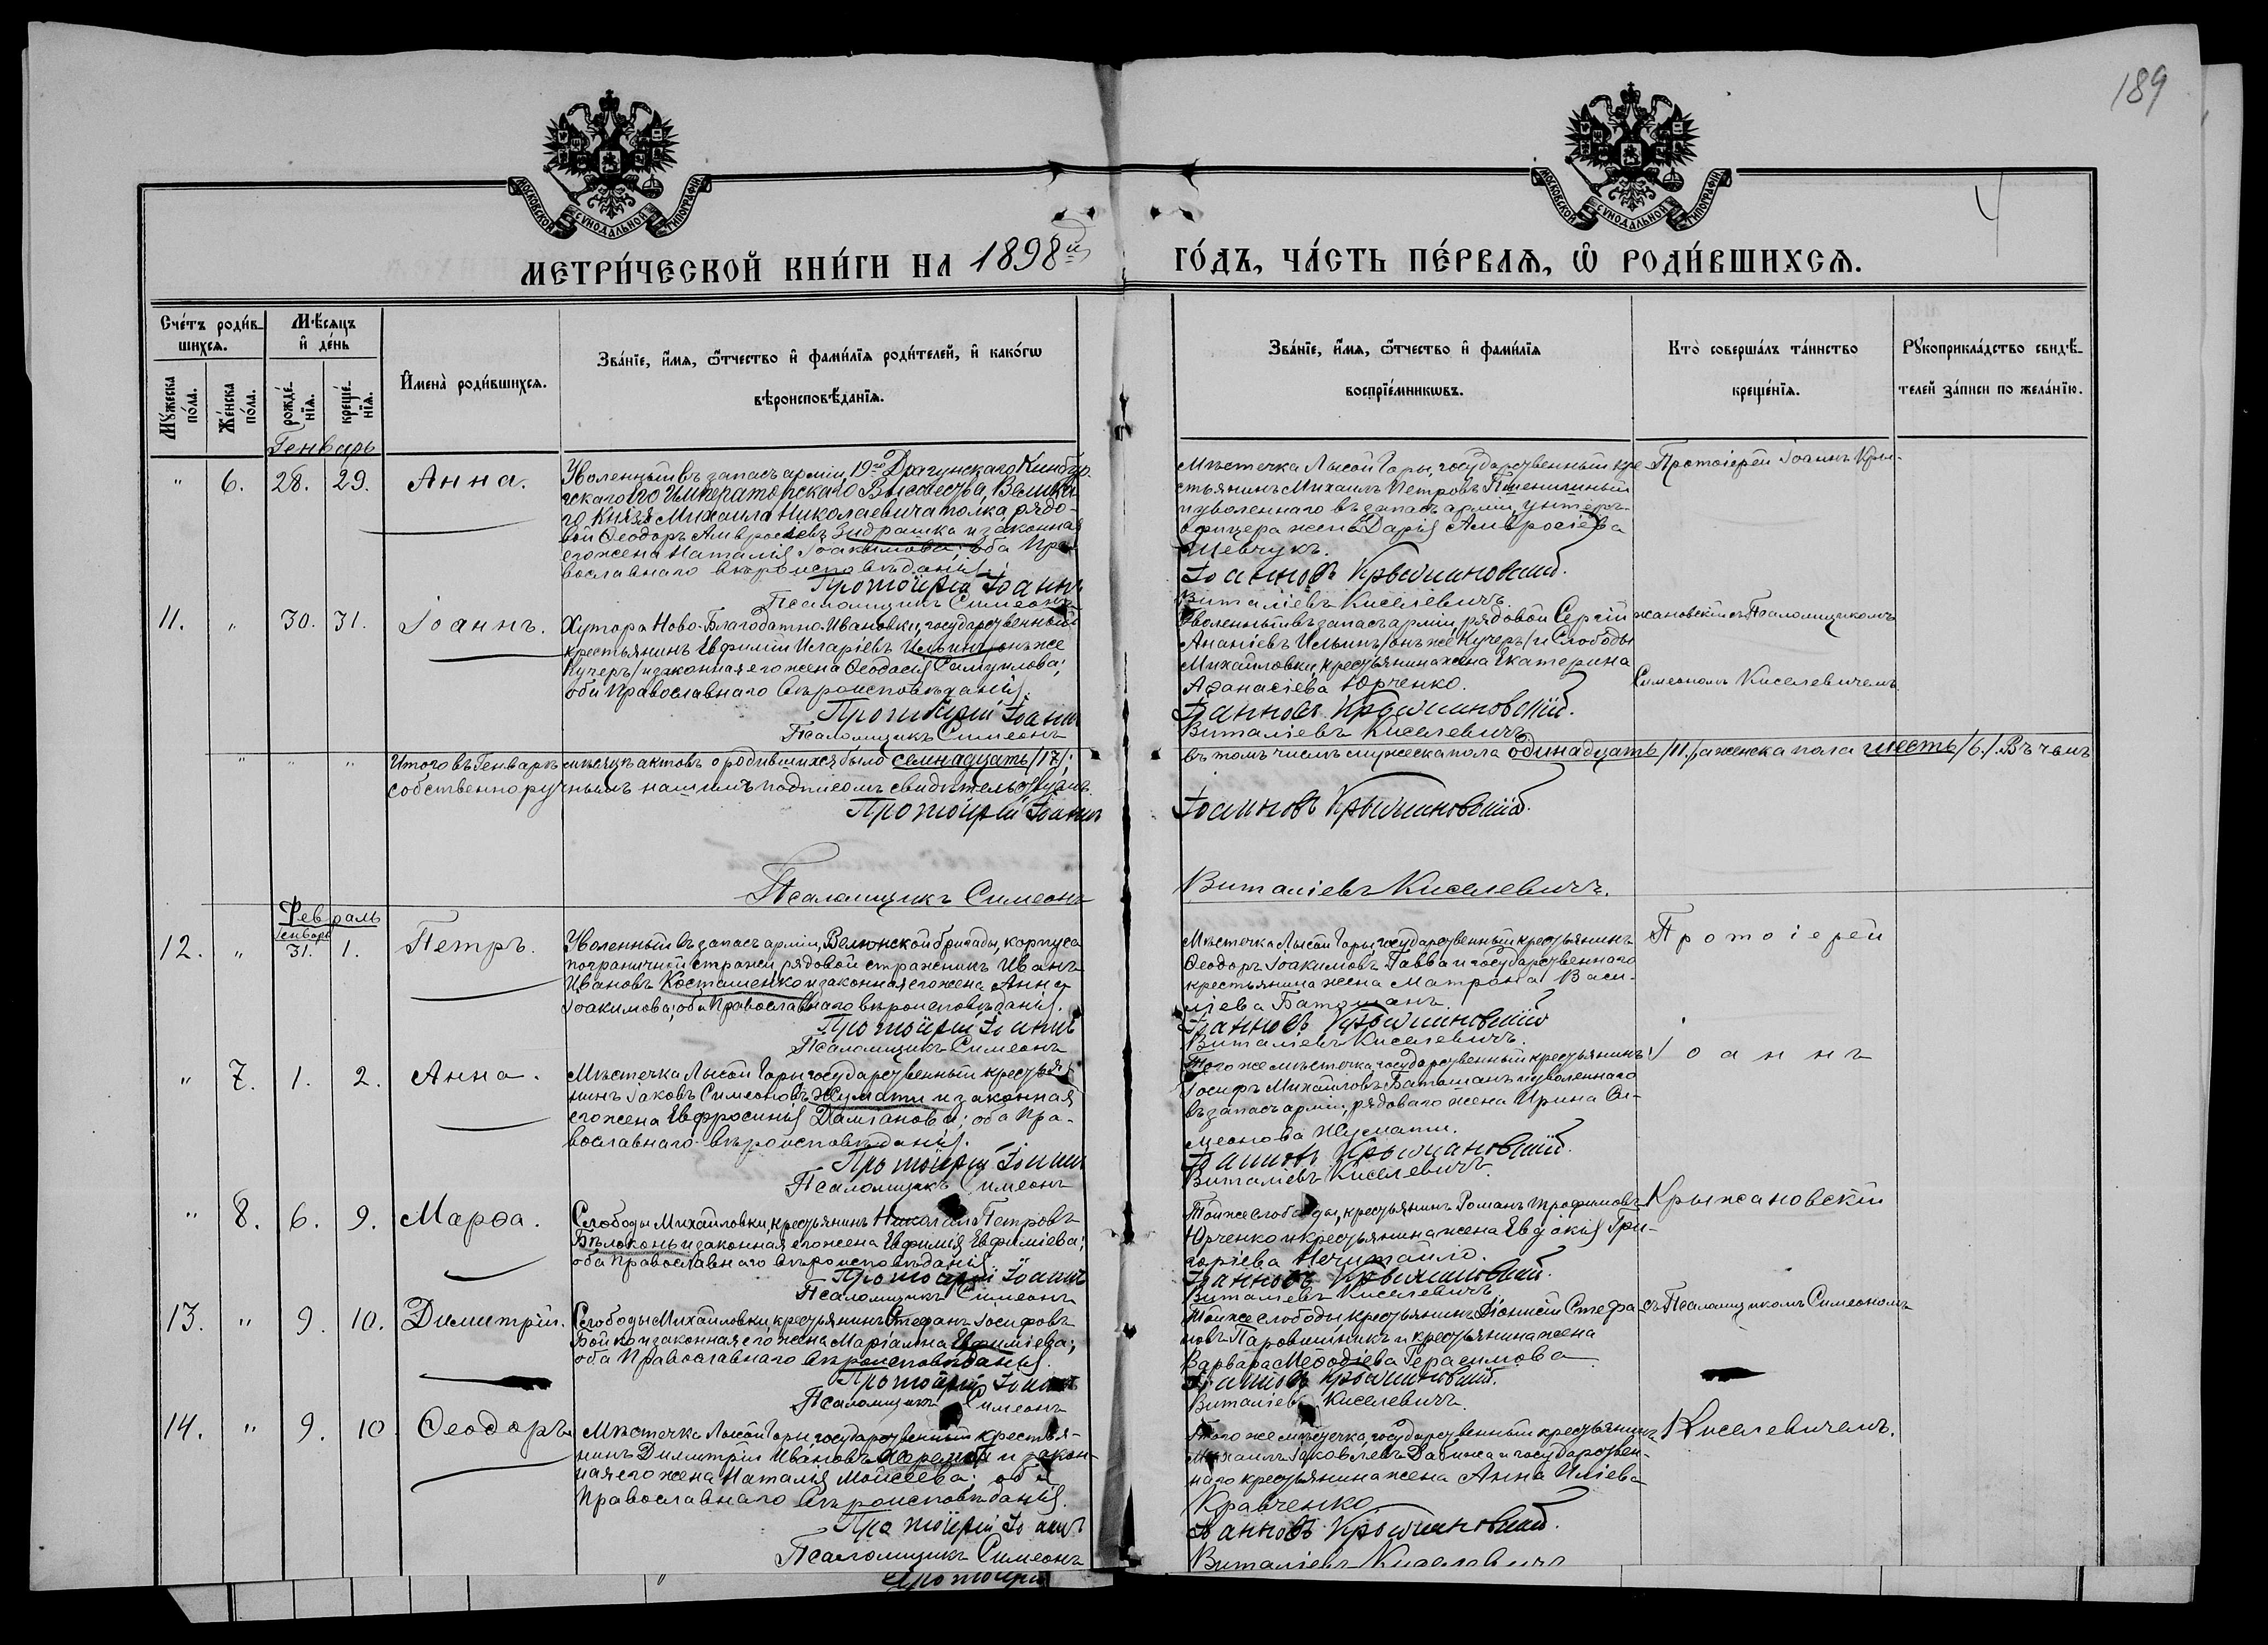 189
МОСКОВСКОЙ СѴНОДАЛЬНОЙ ТИПОГРАФІИ
МОСКОВСКОЙ СѴНОДАЛЬНОЙ ТИПОГРАФІИ
МЕТРИ́ЧЕСКОЙ КНИ́ГИ НА 1898й
ГО́ДЪ, ЧА́СТЬ ПЕ́РВАѦ, Ѡ҆ РОДИ́ВШИХСѦ.
Сче́тъ роди́в-
шихсѧ.
Мѣ́сѧцъ
и҆ де́нь
Мꙋ́жеска
по́ла.
Же́нска
по́ла.
рожде́-
нїѧ.
креще́-
нїѧ.
И҆мена̀ роди́вшихсѧ.
Зва́нїе, и҆́мѧ, ѻ҆́тчество и҆ фами́лїѧ роди́телей, и҆ како́гѡ
вѣроисповѣ́данїѧ.
Зва́нїе, и҆́мѧ, ѻ҆́тчество и҆ фами́лїѧ
воспрїе́мникѡвъ.
Кто̀ соверша́лъ та́инство
креще́нїѧ.
Рꙋкоприкла́дство свидѣ́-
телей за́писи по жела́нїю.
Генварь
" 6. 28. 29. Анна.
Уволенный въ запасъ арміи, 19го Драгунскаго Кинбур-
нскаго Его Императорскаго Высочества, Велика-
го Князя Михаила Николаевича полка рядо-
вой Ѳеодоръ Амвросіевъ Зидрашка и законная
его жена Наталія Іоакимова; оба Пра-
вославнаго вѣроисповѣданія.
Протоіерей Іоаннъ
Псаломщикъ Симеонъ
Мѣстечка Лысой Горы, государственный кре-
стьянинъ Михаилъ Петровъ Пшеничный
и уволеннаго въ запасъ арміи, унтеръ-
офицера жена Дарія Амвросіева
Шевчукъ.
Іоанновъ Крыжановскій.
Виталіевъ Киселевичъ.
Протоіерей Іоаннъ Кры-
11. " 30. 31. Іоаннъ.
Хутора Ново-Благодатно-Ивановки, государственный
крестьянинъ Евфимій Иларіевъ Ильинъ /онъ же
Кучеръ/ и законная его жена Ѳеодосія Самуилова;
оба Православнаго вѣроисповѣданія.
Протоіерей Іоаннъ
Псаломщикъ Симеонъ
Уволенный въ запасъ арміи, рядовой Сергій
Ананіевъ Ильинъ /онъ же Кучеръ/ и Слободы
Михайловки, крестьянина жена Екатерина
Аѳанасіева Юрченко.
Іоанновъ Крыжановскій.
Виталіевъ Киселевичъ.
жановскій съ Псаломщикомъ
Симеономъ Киселевичемъ.
" " " Итого въ Генварѣ мѣсяцѣ актовъ о родившихся было семнадцать /17/;
въ томъ числѣ мужеска пола одинадцать /11/, а женска пола шесть /6/. Въ чемъ
собственноручнымъ нашимъ подписомъ свидѣтельствуемъ.
Протоіерей Іоаннъ
Іоанновъ Крыжановскій.
Псаломщикъ Симеонъ
Виталіевъ Киселевичъ.
Февраль
Генварь
12. " 31. 1. Петръ.
Уволенный въ запасъ арміи, Велюнской бригады, корпуса
пограничной стражи, рядовой стражникъ Иванъ
Ивановъ Косташенко и законная его жена Анна
Іоакимова; оба Православнаго вѣроисповѣданія.
Протоіерей Іоаннъ
Псаломщикъ Симеонъ
Мѣстечка Лысой Горы, государственный крестьянинъ
Ѳеодоръ Іоакимовъ Гавва и государственнаго
крестьянина жена Матрона Васи-
ліева Баташанъ.
Іоанновъ Крыжановскій
Виталіевъ Киселевичъ.
Протоіерей
" 7. 1. 2. Анна.
Мѣстечка Лысой Горы государственный крестья-
нинъ Іаковъ Симеоновъ Жумати и законная
его жена Евфросинія Даміанова; оба Пра-
вославнаго вѣроисповѣданія.
Протоіерей Іоаннъ
Псаломщикъ Симеонъ
Того же мѣстечка, государственный крестьянинъ
Іосифъ Михайловъ Баташанъ и уволеннаго
въ запасъ арміи, рядоваго жена Ирина Си-
меонова Жумати.
Іоанновъ Крыжановскій.
Виталіевъ Киселевичъ.
Іоаннъ
" 8. 6. 9. Марѳа.
Слободы Михайловки, крестьянинъ Николай Петровъ
Бѣлоконь и законная его жена Евфимія Евфиміева;
оба Православнаго вѣроисповѣданія.
Протоіерей Іоаннъ
Псаломщикъ Симеонъ
Той же слободы, крестьянинъ Романъ Трофимовъ
Юрченко и крестьянина жена Евдокія Гри-
горіева Нечитайло.
Іоанновъ Крыжановскій.
Виталіевъ Киселевичъ.
Крыжановскій
13. " 9. 10. Димитрій.
Слободы Михайловки, крестьянинъ Стефанъ Іосифовъ
Бойко и законная его жена Маріамна Евфиміева;
оба Православнаго вѣроисповѣданія.
Протоіерей Іоаннъ
Псаломщикъ Симеонъ
Той же слободы, крестьянинъ Діонисій Стефа-
новъ Паровишникъ и крестьянина жена
Варвара Меѳодіева Герасимова.
Іоанновъ Крыжановскій.
Виталіевъ Киселевичъ.
съ Псаломщикомъ Симеономъ
14. " 9. 10. Ѳеодоръ.
Мѣстечка Лысой Горы, государственный крестья-
нинъ Димитрій Ивановъ и закон-
ная его жена Наталія Моисеева; оба
Православнаго вѣроисповѣданія.
Протоіерей Іоаннъ
Псаломщикъ Симеонъ
Того же мѣстечка, государственный крестьянинъ
Михаилъ Іаковлевъ Дабижа и государствен-
наго крестьянина жена Анна Иліева
Кравченко
Іоанновъ Крыжановскій.
Виталіевъ Киселевичъ
Киселевичемъ.
Протоіерей